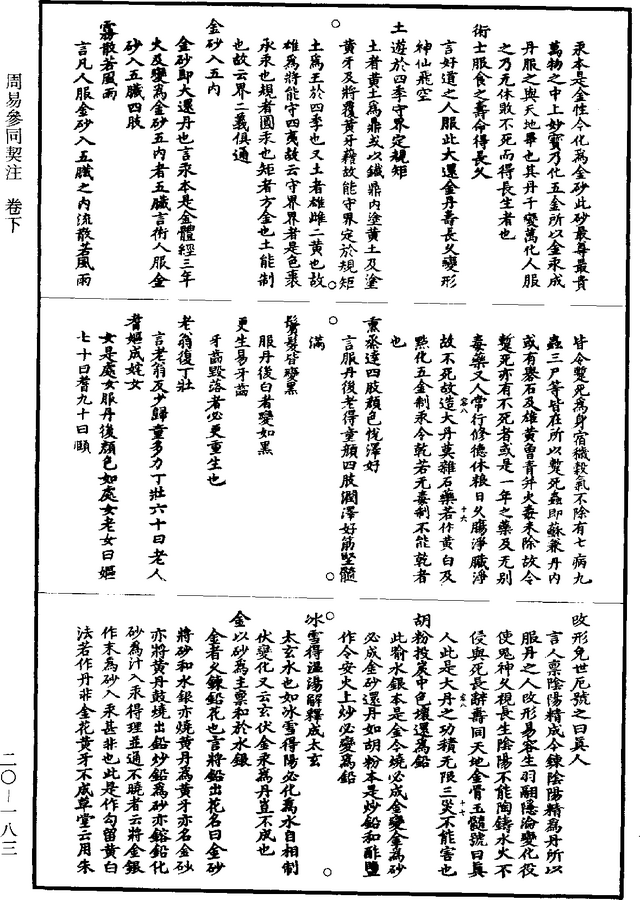 周易參同契注　卷下
二〇—一八三
汞本是金性今化爲金砂此砂最尊最貴
萬物之中上妙寶乃化五金所以金汞成
丹服之與天地畢也其丹千變萬化人服
之乃无休敗不死而得長生者也
術士服食之壽命得長久
言好道之人服此大還金丹壽長久變形
神仙飛空
土遊於四季守界定規矩
土者黃土爲鼎或以鐵鼎内塗黃土及塗
黃牙及將覆黃牙藉故能守界定於規矩
土爲王於四季也又土者雄雌二黃也故
雄爲將能守四夷故云守界界者是色裹
汞汞也規者圓汞也矩者方金也土能制
也故云界二義俱通
金砂入五内
金砂即大還丹也言汞本是金體經三年
火及變爲金砂五内者五臟言術人服金
砂入五臟四肢
霧散若風雨
言凡人服金砂入五臟之内流散若風雨
皆令蹔死爲身宿穢穀氣不除有七病九
蟲三尸等皆在所以蹔死蟲即蘇兼丹内
或有礜石及雄黃曾青并火毒未除故令
蹔死亦有不死者或是一年之藥及无别
毒藥又人常行修德休粮日久腸淨臟淨
故不死故造大丹莫雜石藥若作黃白及
點化五金制汞令乾若无毒制不能乾者
也
熏蒸達四肢顏色悅澤好
言服丹後老得童顏四肢潤澤好筋堅髓
滿
鬢髮皆變黑
服丹後白者變如黑
更生易牙齒
牙齒毀落者必更重生也
老翁復丁壯
言老翁反少歸童多力丁壯六十曰老人
耆嫗成姹女
女是處女服丹後顏色如處女老女曰嫗
七十曰耆九十曰頤
改形免世厄號之曰眞人
言人稟陰陽精成今鍊陰陽精爲丹所以
服丹之人改形易容生羽翮隱淪變化役
使鬼神久視長生陰陽不能陶鑄水火不
侵與死長辭壽同天地金骨玉髓號曰眞
人此是大丹之功積无限三災不能害也
胡粉投炭中色壞還爲鉛
此喻水銀本是金今燒必成金變金爲砂
必成金砂還丹如胡粉本是炒鉛和酢鹽
作令安火上炒必變爲鉛
冰雪得溫湯解釋成太玄
太玄水也如冰雪得陽必化爲水自相制
伏變化又云玄伏金汞爲丹豈不成也
金以砂爲主稟和於水銀
金者久鍊鉛花也言將鉛出花名曰金砂
將砂和水銀亦燒黃丹爲黃牙亦名金砂
亦將黃丹鼓燒出鉛炒鉛爲砂亦鎔鉛化
砂爲汁入汞得理並通不曉者云將金銀
作末爲砂入汞甚非也此是作勾留黃白
法若作丹非金花黃牙不成草堂云用朱